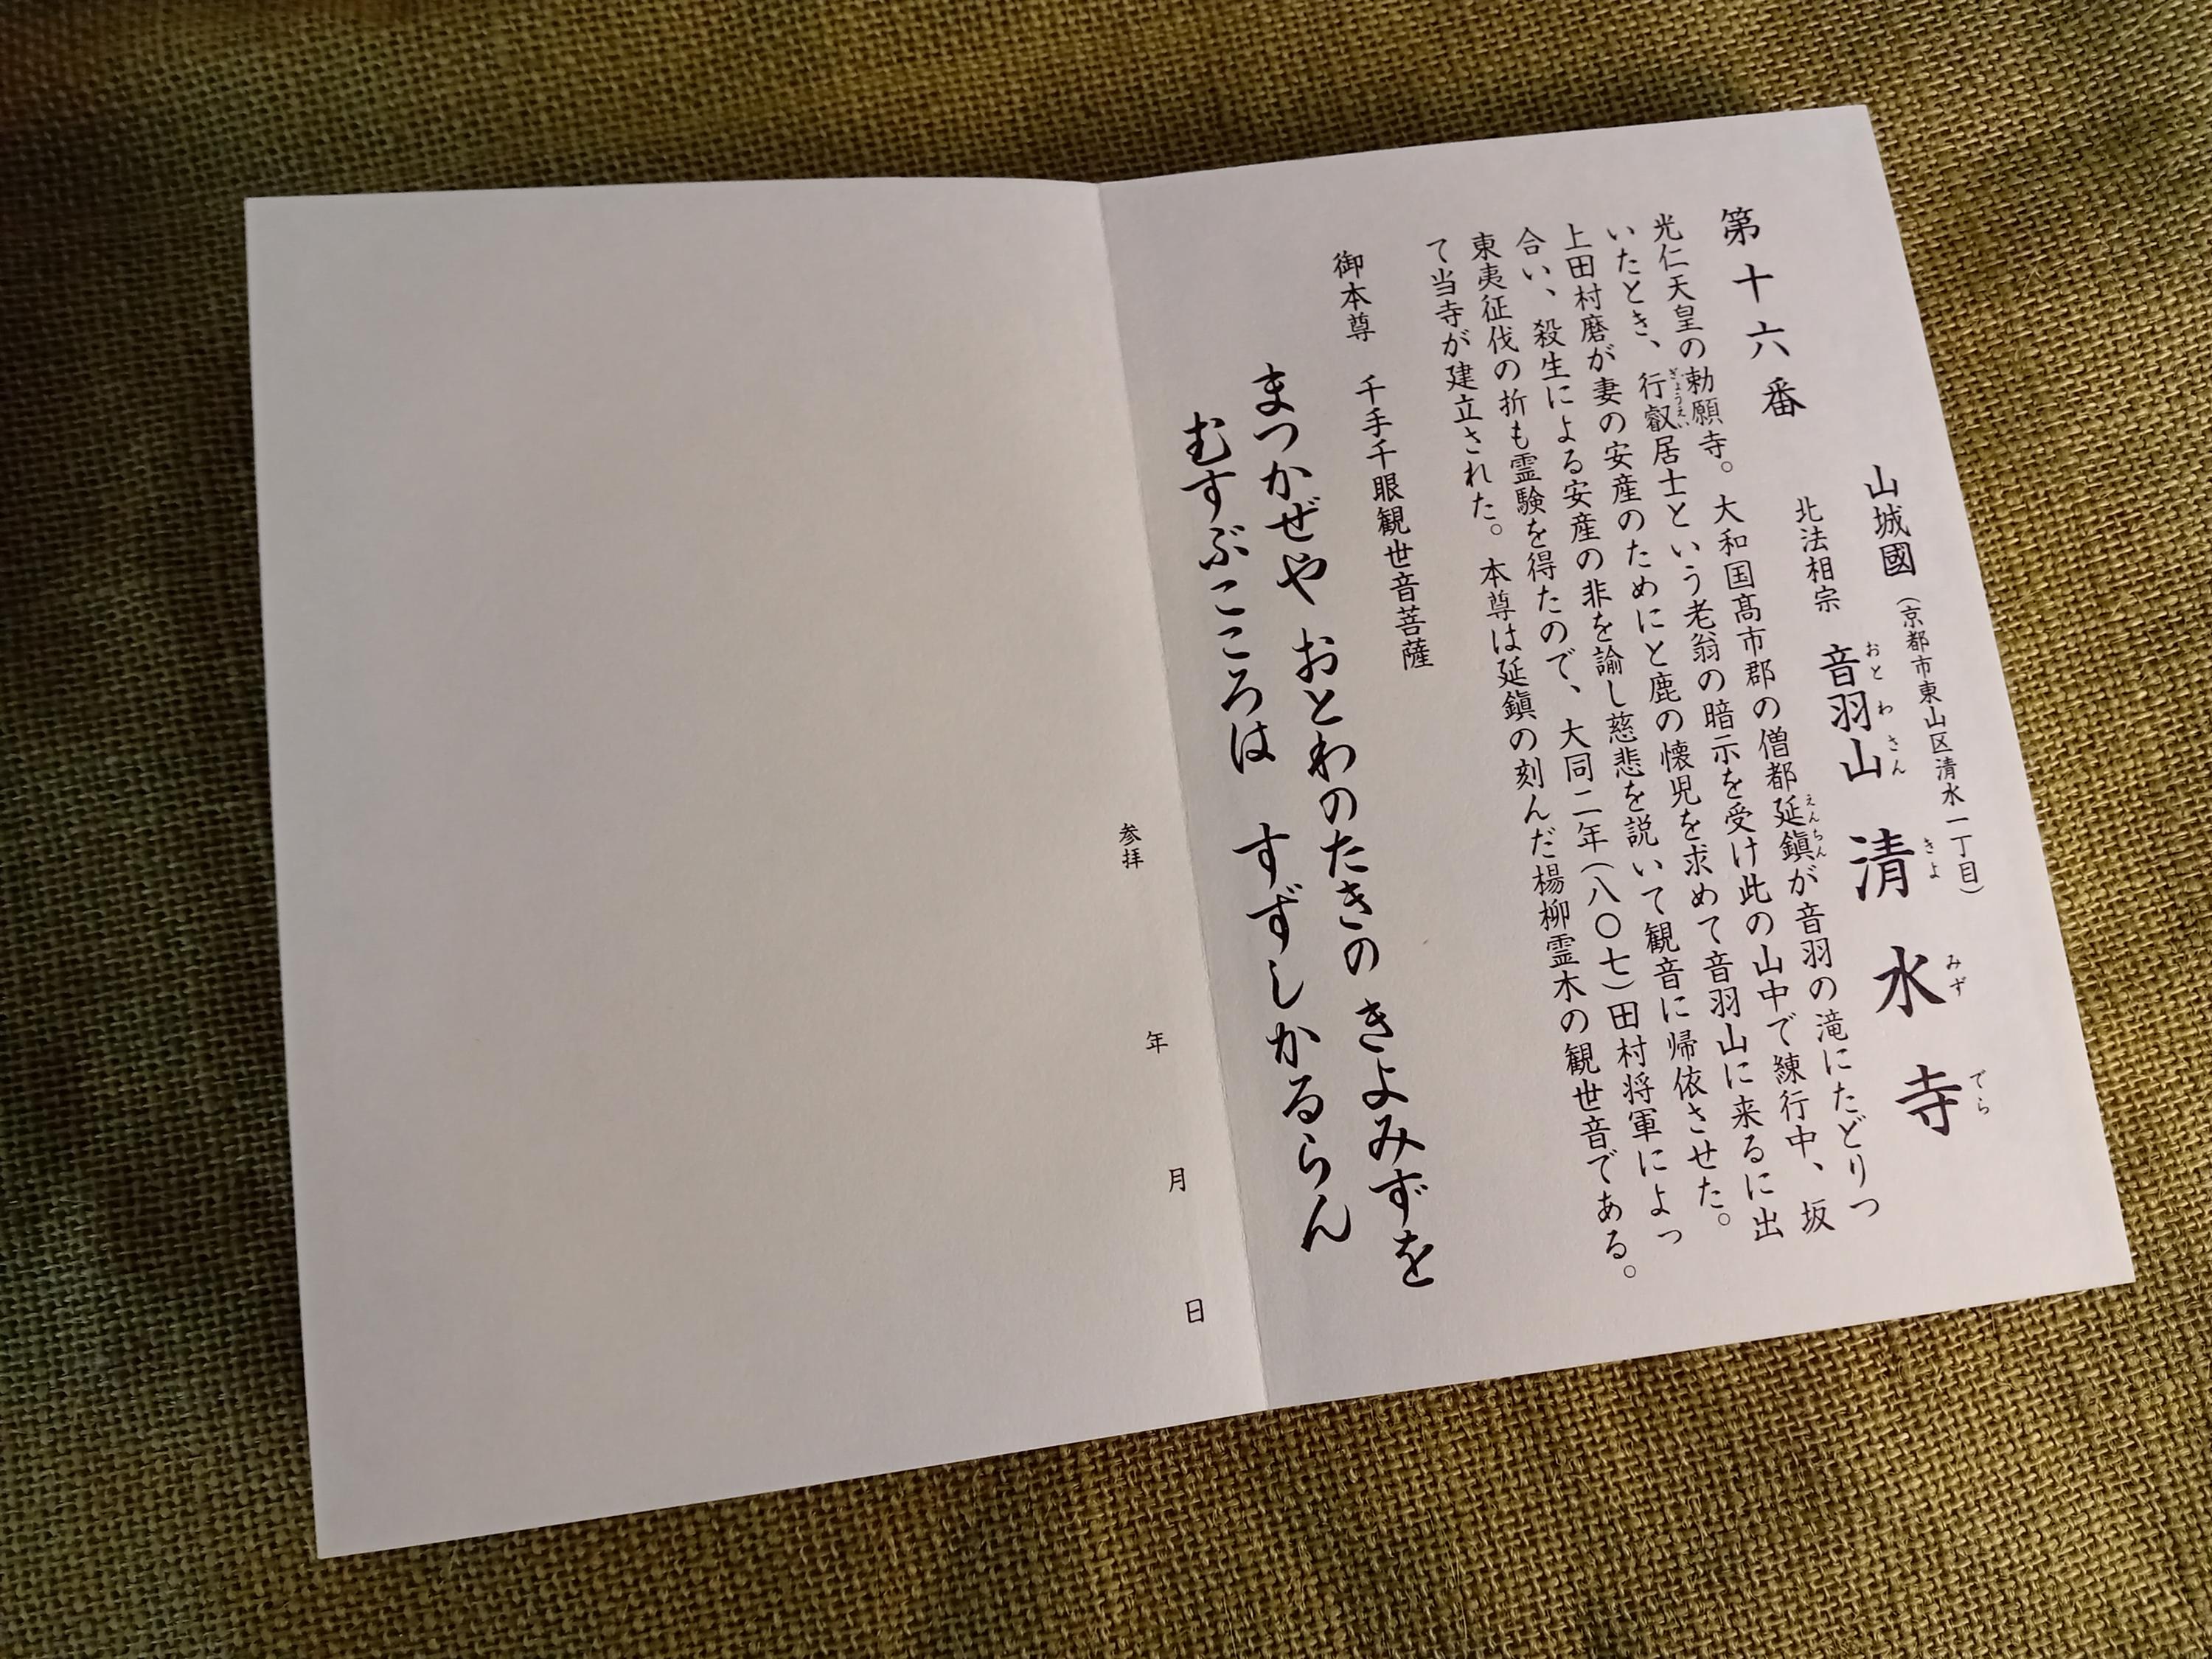 第十六番
山城國（京都市東山区清水一丁目）
北法相宗 音羽山 清水寺
おとわさん きよみずでら
光仁天皇の勅願寺。大和国髙市郡の僧都延鎭が音羽の滝にたどりつ
えんちん
いたとき、行叡居士という老翁の暗示を受け此の山中で練行中、坂
ぎょうえい
上田村磨が妻の安産のためにと鹿の懐児を求めて音羽山に来るに出
合い、殺生による安産の非を諭し慈悲を説いて観音に帰依させた。
東夷征伐の折も霊験を得たので、大同二年（八〇七）田村将軍によっ
て当寺が建立された。本尊は延鎭の刻んだ楊柳霊木の観世音である。
御本尊 千手千眼観世音菩薩
まつかぜや おとわのたきの きよみずを
むすぶこころは すずしかるらん
参拝 年 月 日